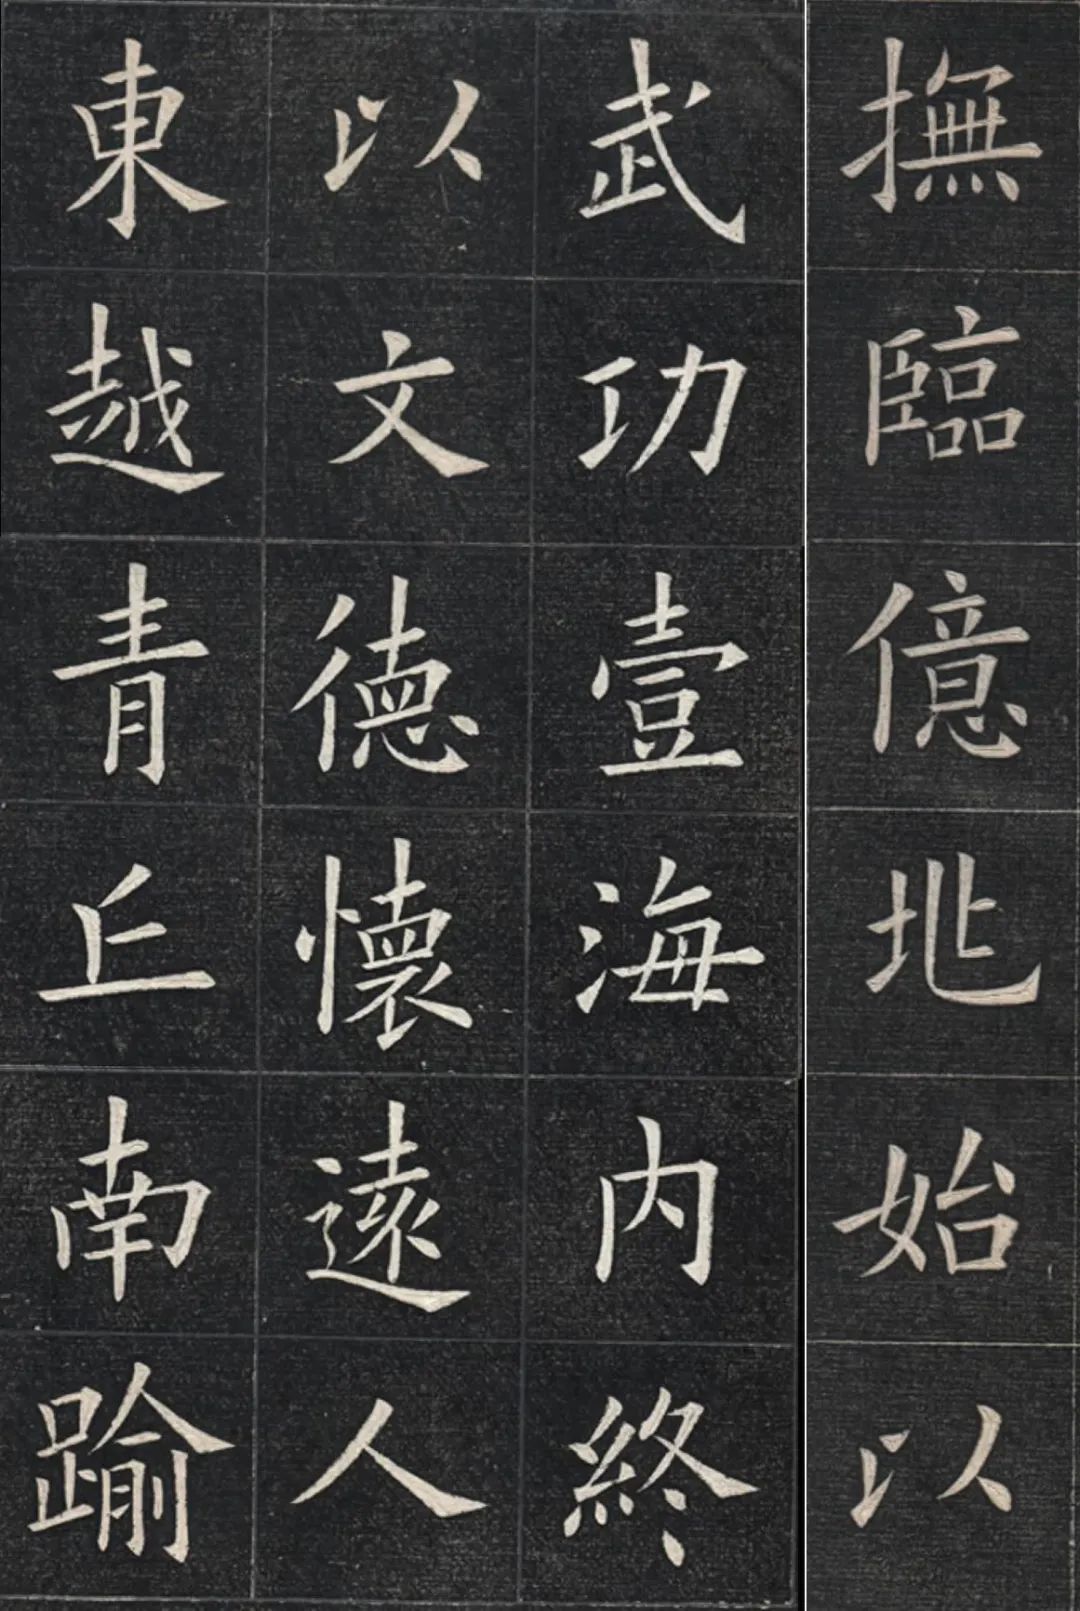 撫臨億兆始以
武功壹海内終
以文德懷遠人
東越青丘南踰